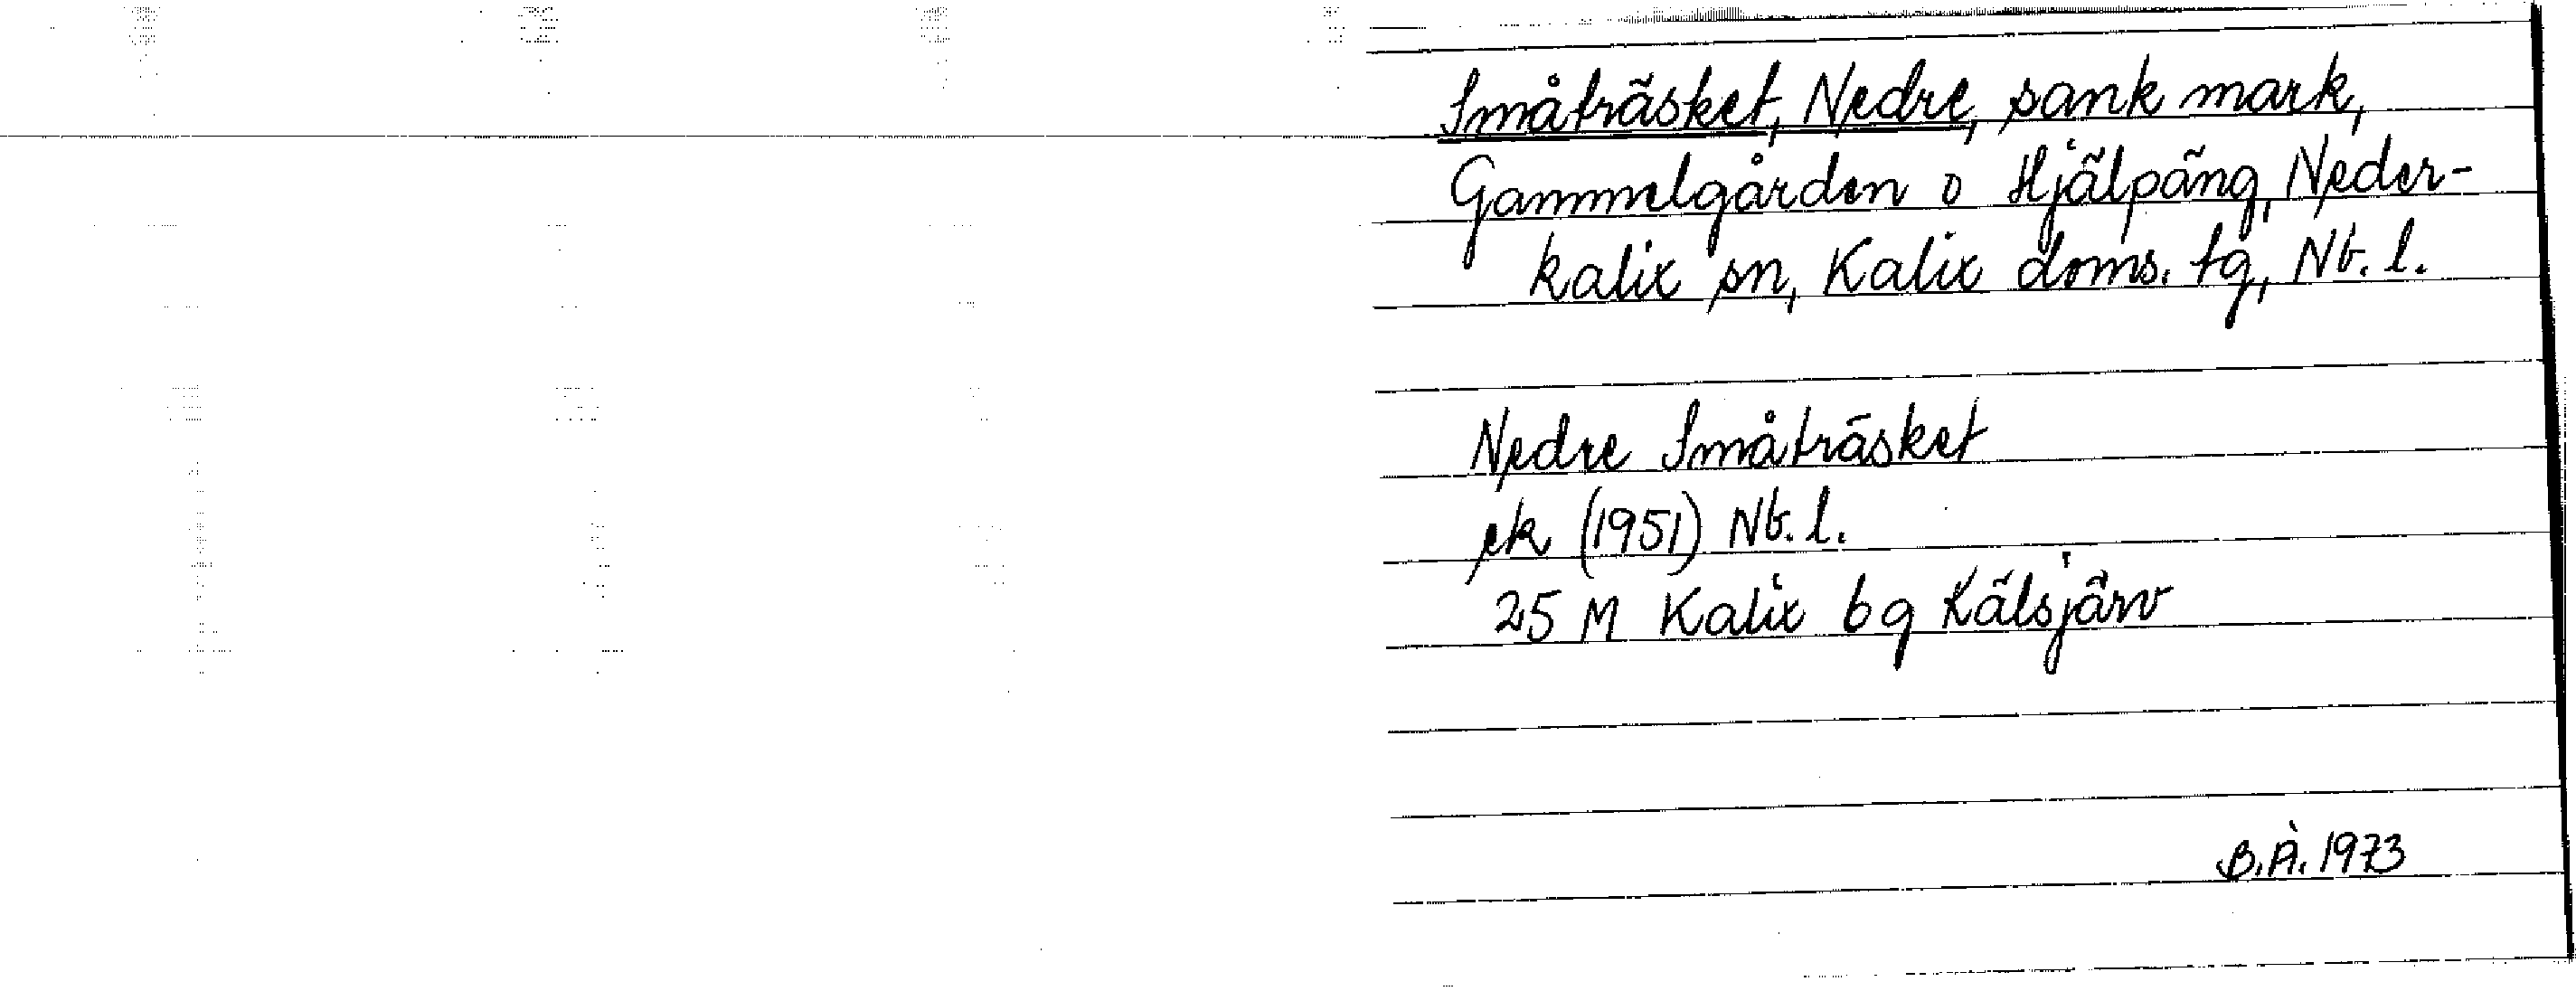 Småträsket, Nedre, sank mark,
Gammelgården o Hjälpäng, Neder-
kalix sn, Kalix doms. tg, Nb. l.
Nedre Småträsket
ek (1951) Nb. l.
25 M Kalix 6 g Kälsjärv
B.Å. 1973